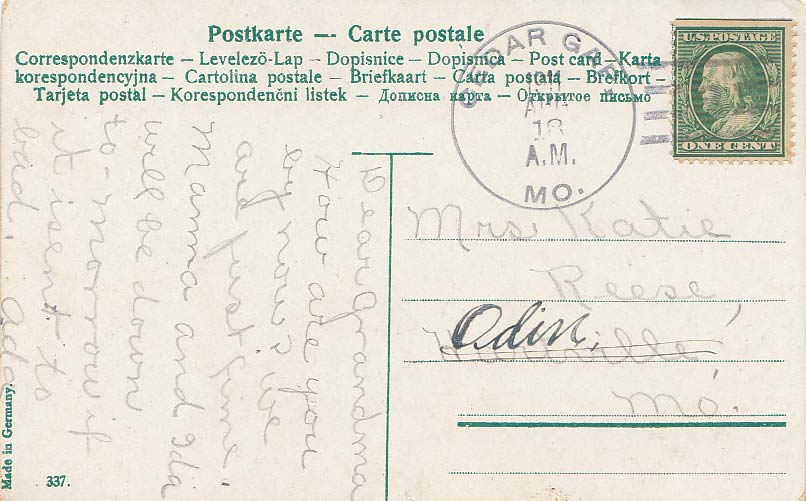 Postkarte — Carte postale
Correspondenzkarte – Levelező-Lap – Dopisnice – Dopisnica – Post card – Karta
korespondencyjna – Cartolina postale – Briefkaart – Carta postala – Brefkort –
Tarjeta postal – Korespondenční listek – Дописна карта – Открытое письмо
CEDAR GAP
APR
18
A.M.
MO.
U.S. POSTAGE
ONE CENT
Mrs. Katie
Reese
Odin,
Mo.
Dear Grandma
How are you
by now? We
are just fine.
Mama and Ida
will be down
to-morrow if
it isent to
bad. Ada
Made in Germany.
337.